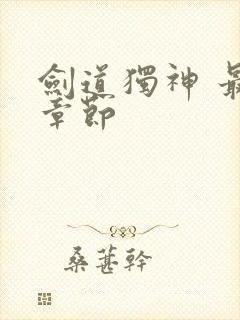 劍道獨神 最
章節
桑葚幹